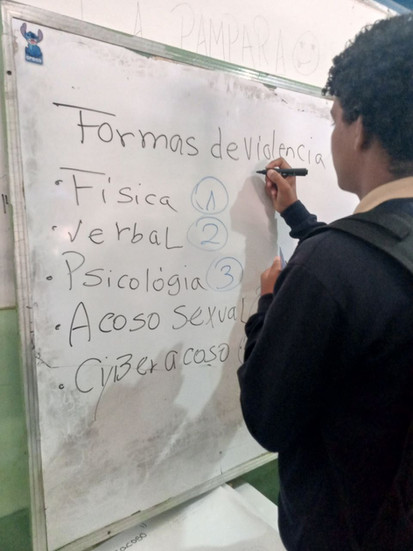 A PAMPARA
Formas de violencia
• Física 1
• Verbal 2
• Psicológia 3
• Acoso sexual
• CyBeracoso